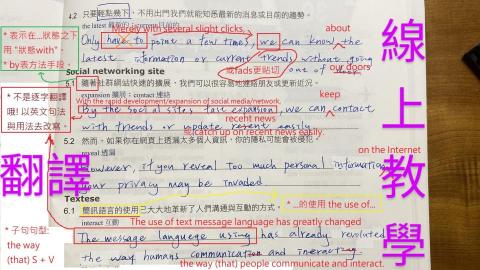 4.2 只要輕點幾下，不用出門我們就能知悉最新的消息或目前的趨勢。
the latest 最新的
Merely with several slight clicks,
about
Only have to point a few times, we can know the
latest information or current trends without going
或fads更貼切
out of door
our doors
* 表示在...狀態之下
用 "狀態with"，
* by表方法手段。
Social networking site
5.1 隨著社群網站快速的擴展，我們可以很容易地連絡朋友或更新近況。
expansion 擴展；contact 連絡
keep
With the rapid development/expansion of social media/network,
By the social sites fast expansion, we can contact
recent news
with friends or update recent easily.
或catch up on recent news easily.
* 不是逐字翻譯
哦! 以英文句法
與用法去改寫。
5.2 然而，如果你在網頁上透漏太多個人資訊，你的隱私可能會被侵犯。
reveal 透漏
on the Internet
However, if you reveal too much personal information
your privacy may be invaded.
Textese
* ...的使用 the use of...
6.1 簡訊語言的使用已大大地革新了人們溝通與互動的方式。
interact 互動
The use of text message language has greatly changed
The message language using has already revoluted
the way humans communication and interacting.
the way (that) people communicate and interact.
* 子句句型:
the way
(that) S + V
翻譯
線上教學